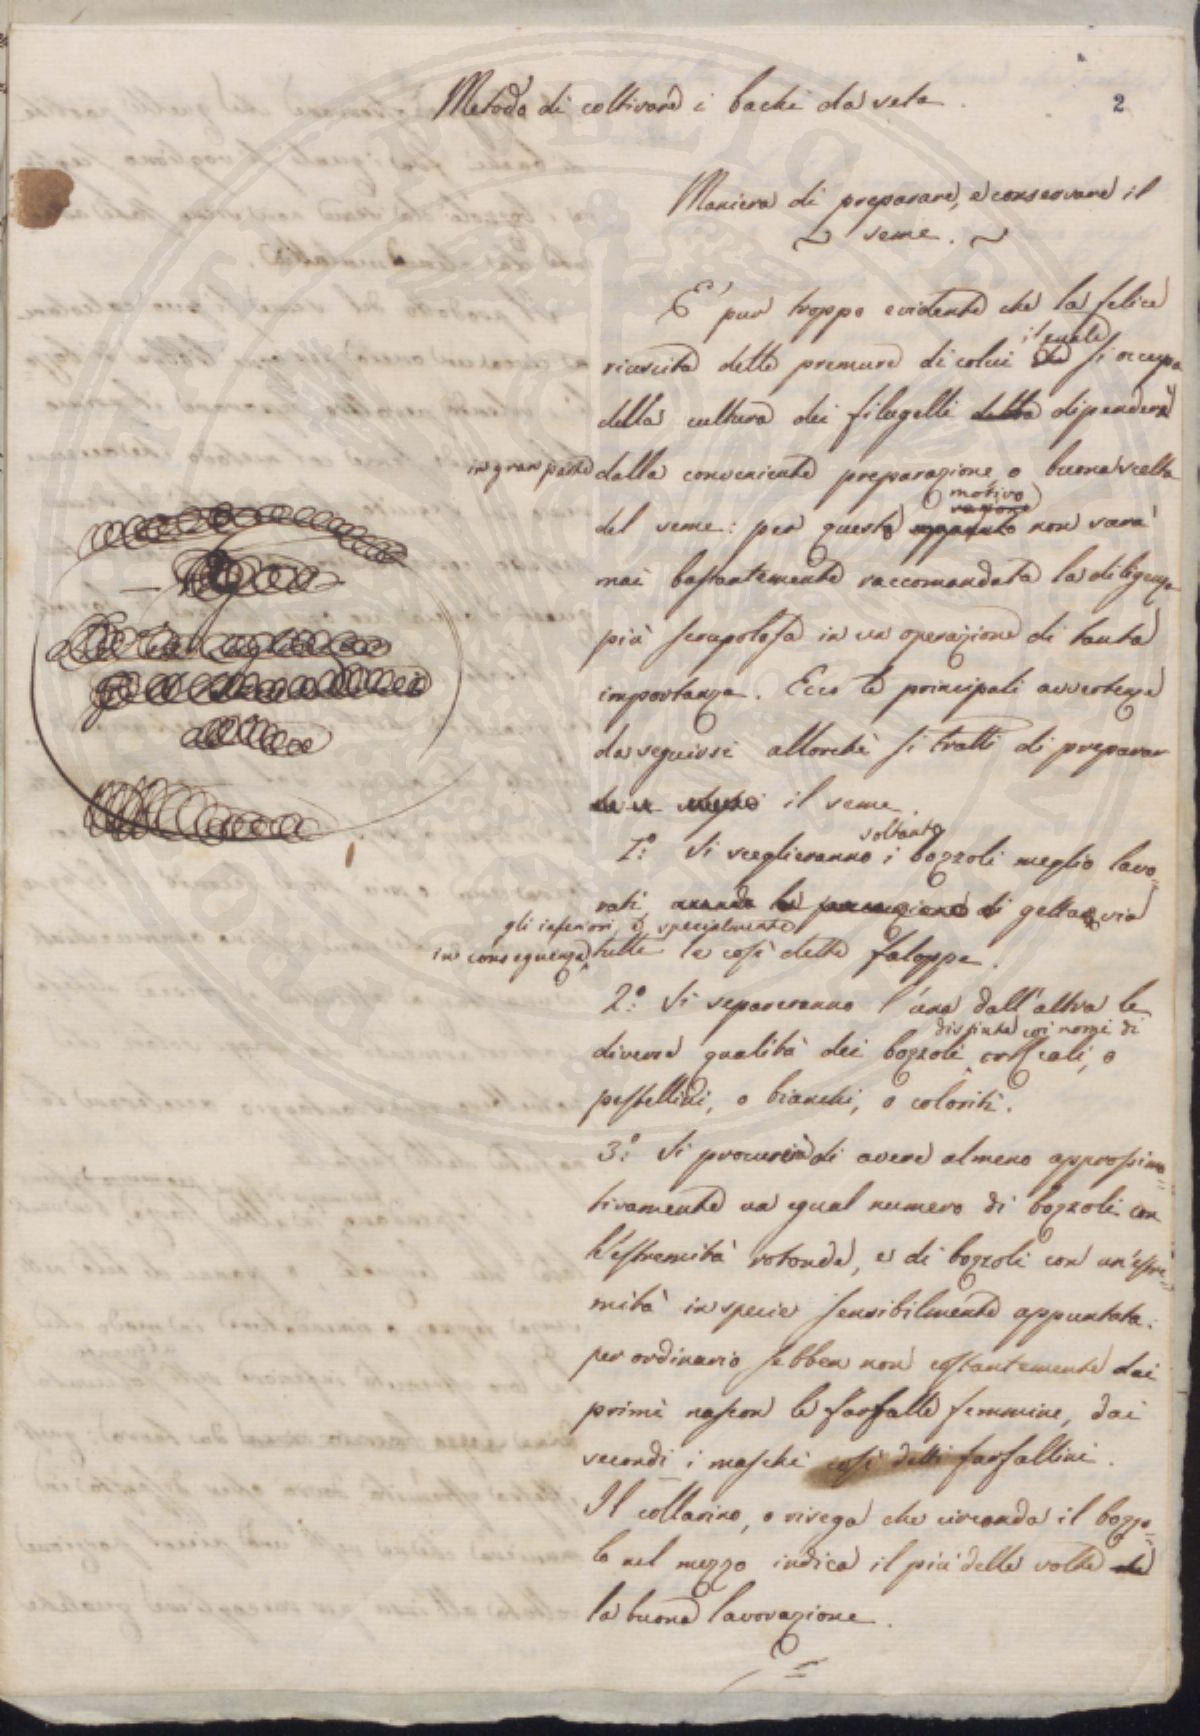 Metodo di coltivare i bachi da seta.
2
Maniera di preparare, e conservare il
~ seme. ~
E' pur troppo evidente che la felice
il quale
riuscita delle premure di colui che si occupa
della cultura dei filugelli della dipenderà
in gran parte dalla conveniente preparazione o buona scelta
motivo
ragione
del seme: per questo appunto non sarà
mai bastantemente raccomandata la diligenza
più scrupolosa in un operazione di tanta
importanza. Ecco le principali avvertenze
da seguirsi allorchè si tratti di preparar
il seme.
soltanto
1.º Si sceglieranno i bozzoli meglio lavo=
rati di gettar via
gli inferiori, e specialmente
in conseguenza tutte le così dette faloppe.
2.º Si separeranno l'una dall'altra le
distinte coi nomi di
diverse qualità dei bozzoli, cali, o
pestellini, o bianchi, o coloriti.
3.º Si procurerà di avere almeno approssima=
tivamente un egual numero di bozzoli con
l'estremità rotonda, e di bozzoli con un'estre=
mità in specie sensibilmente appuntata:
per ordinario sebben non costantemente dai
primi nascon le farfalle femmine, dai
secondi i maschi così detti farfallini.
Il collarino, o rivega che circonda il bozzo=
lo nel mezzo indica il più delle volte che
la buona lavorazione.